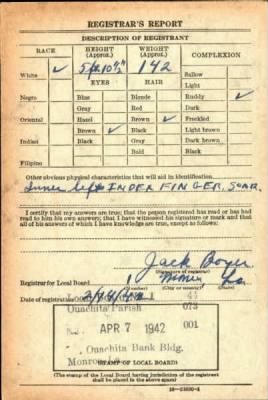 REGISTRAR'S REPORT
DESCRIPTION OF REGISTRANT
RACE HEIGHT (Approx.) WEIGHT (Approx.) COMPLEXION
White ✓ 5 ft 10 ½" 142 Sallow
Light
EYES HAIR
Negro Blue Blonde Ruddy ✓
Gray Red Dark
Oriental Hazel Brown ✓ Freckled
Brown ✓ Black Light brown
Indian Black Gray Dark brown
Bald Black
Filipino
Other obvious physical characteristics that will aid in identification
Inner left INDEX FINGER, SCAR
I certify that my answers are true; that the person registered has read or has had
read to him his own answers; that I have witnessed his signature or mark and that
all of his answers of which I have knowledge are true, except as follows:
Jack
(Signature of registrar)
Registrar for Local Board 1 La
(Number) (City or county) (State)
Date of registration
1 47
Ouachita Parish 073
APR 7 1942 001
Ouachita Bank Bldg.
STAMP OF LOCAL BOARD)
(The stamp of the Local Board having jurisdiction of the registrant
shall be placed in the above space)